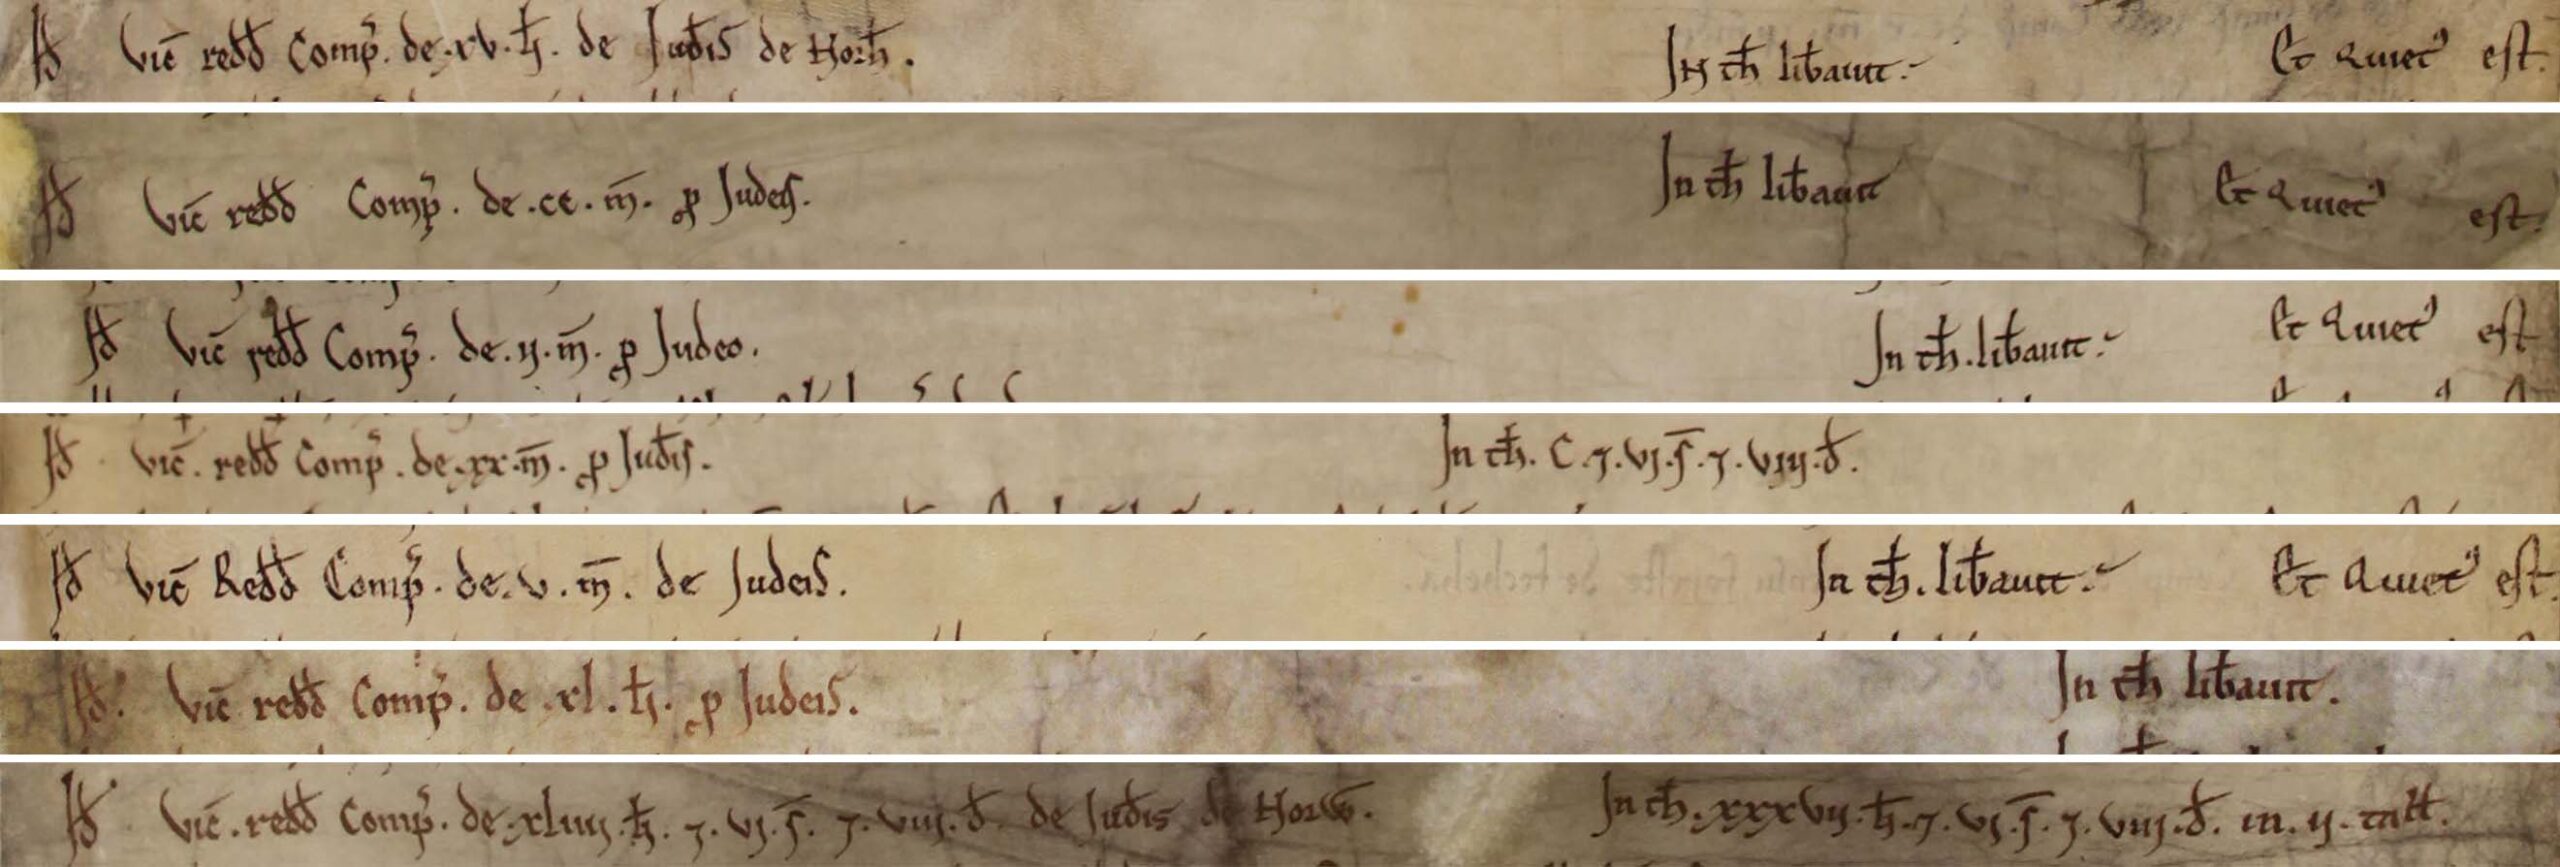 Id Vic̄ redd̄ Comp̄. de .xv. łi. de Jud̄is de Norh̄. In th̄ lib̄auit. Et Quiet' est.
Id Vic̄ redd̄ Comp̄. de .cc. m̄. ꝓ Judeis. In th̄ lib̄auit Et Quiet' est.
Id Vic̄ redd̄ Comp̄. de .ij. m̄. ꝓ Judeo. In th̄. lib̄auit. Et Quiet' est
Id Vic̄. redd̄ Comp̄. de .xx. m̄. ꝓ Jud̄is. In th̄. C .⁊. vj. s̄ .⁊. viij. d̄.
Id Vic̄ Redd̄ Comp̄. de .v. m̄. de Judeis. In th̄. lib̄auit. Et Quiet' est.
Id. Vic̄ redd̄ Comp̄. de .xl. łi. ꝓ Judeis. In th̄ lib̄auit.
Id Vic̄. redd̄ Comp̄. de .xliiij. łi. ⁊. vj. s̄. ⁊. viij. d̄. de Jud̄is de Norw̄. In th̄. xxxvij. łi. ⁊. vj. s̄. ⁊. viij. d̄. in. ij. tałł.